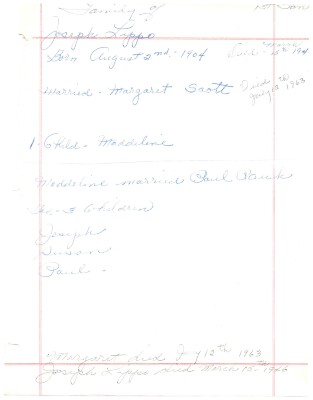 Family of
Joseph Lippo
Born August 2nd - 1904
Died
Married - Margaret Scott
Died
July 12th 1963
1 - Child - Maddeline
Maddeline married Paul
Children
Joseph
Susan
Paul -
Margaret died July 12th 1963
Joseph Lippo died March 15th